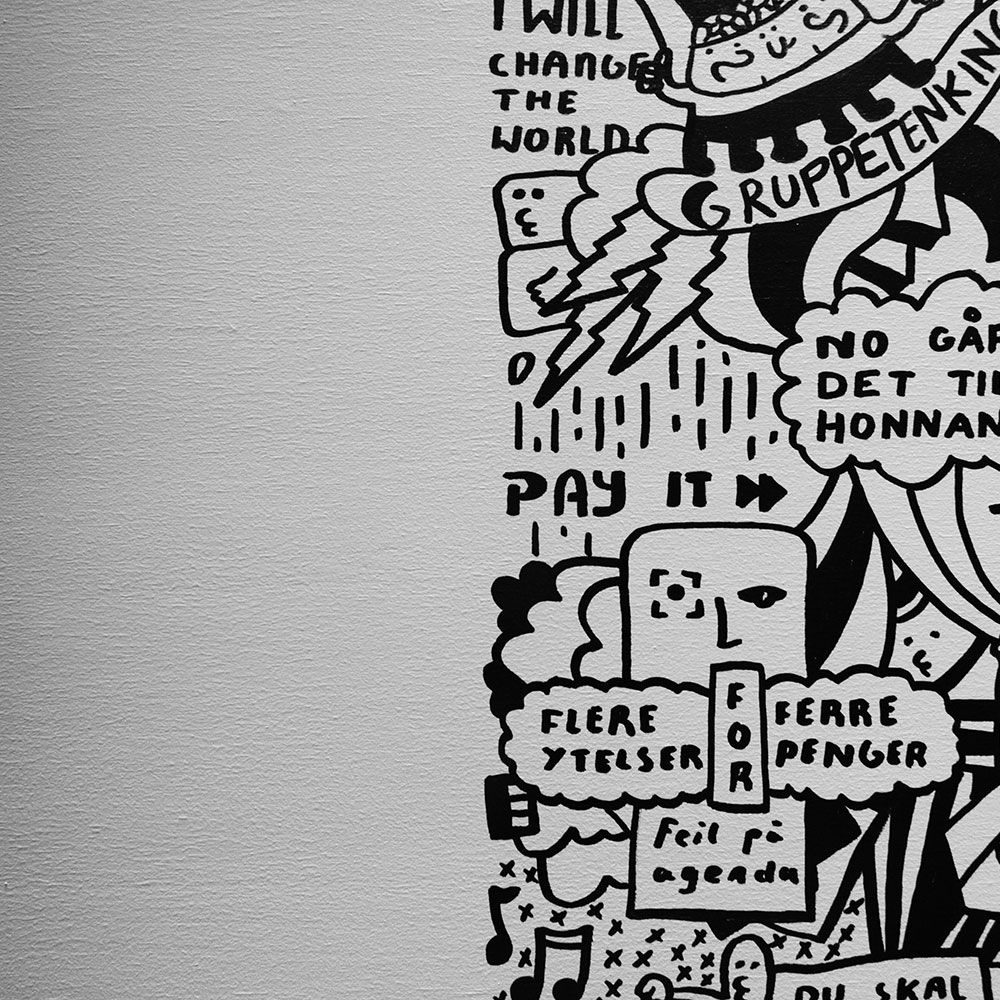 I WILL
CHANGE
THE
WORLD
GRUPPETENKING
NO GÅR
DET TIL
HONNAN
PAY IT
FLERE
YTELSER
FOR
FERRE
PENGER
Feil på
agenda
DU SKAL